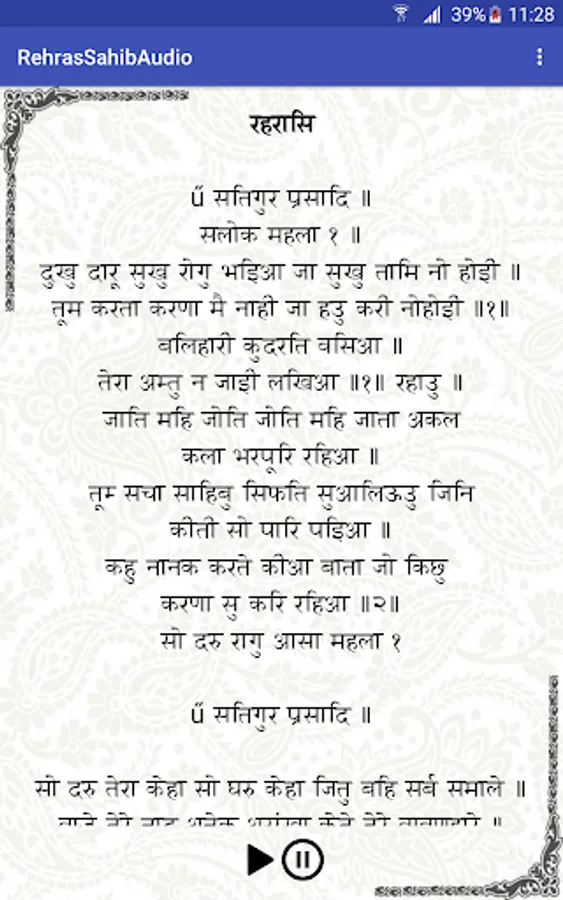 39% 11:28
RehrasSahibAudio
रहरासि
ਪੰ सतिगुर प्रसादि ॥
सलोक महला १ ॥
दुखु दारू सुखु रोगु भइिआ जा सुखु तामि नो होइी ॥
तूम करता करणा मै नाही जा हउ करी नोहोइी ॥१॥
बलिहारी कुदरति वसिआ ॥
तेरा अम्तु न जाइी लखिआ ॥१॥ रहाउ ॥
जाति महि जोति जोति महि जाता अकल
कला भरपूरि रहिआ ॥
तूम सचा साहिबु सिफति सुआलिऊउ जिनि
कीती सो पारि पइिआ ॥
कहु नानक करते कीआ बाता जो किछु
करणा सु करि रहिआ ॥२॥
सो दरु रागु आसा महला १
सतिगुर प्रसादि ॥
सो दरु तेरा केहा सो घरु केहा जितु बहि सर्ब समाले ॥